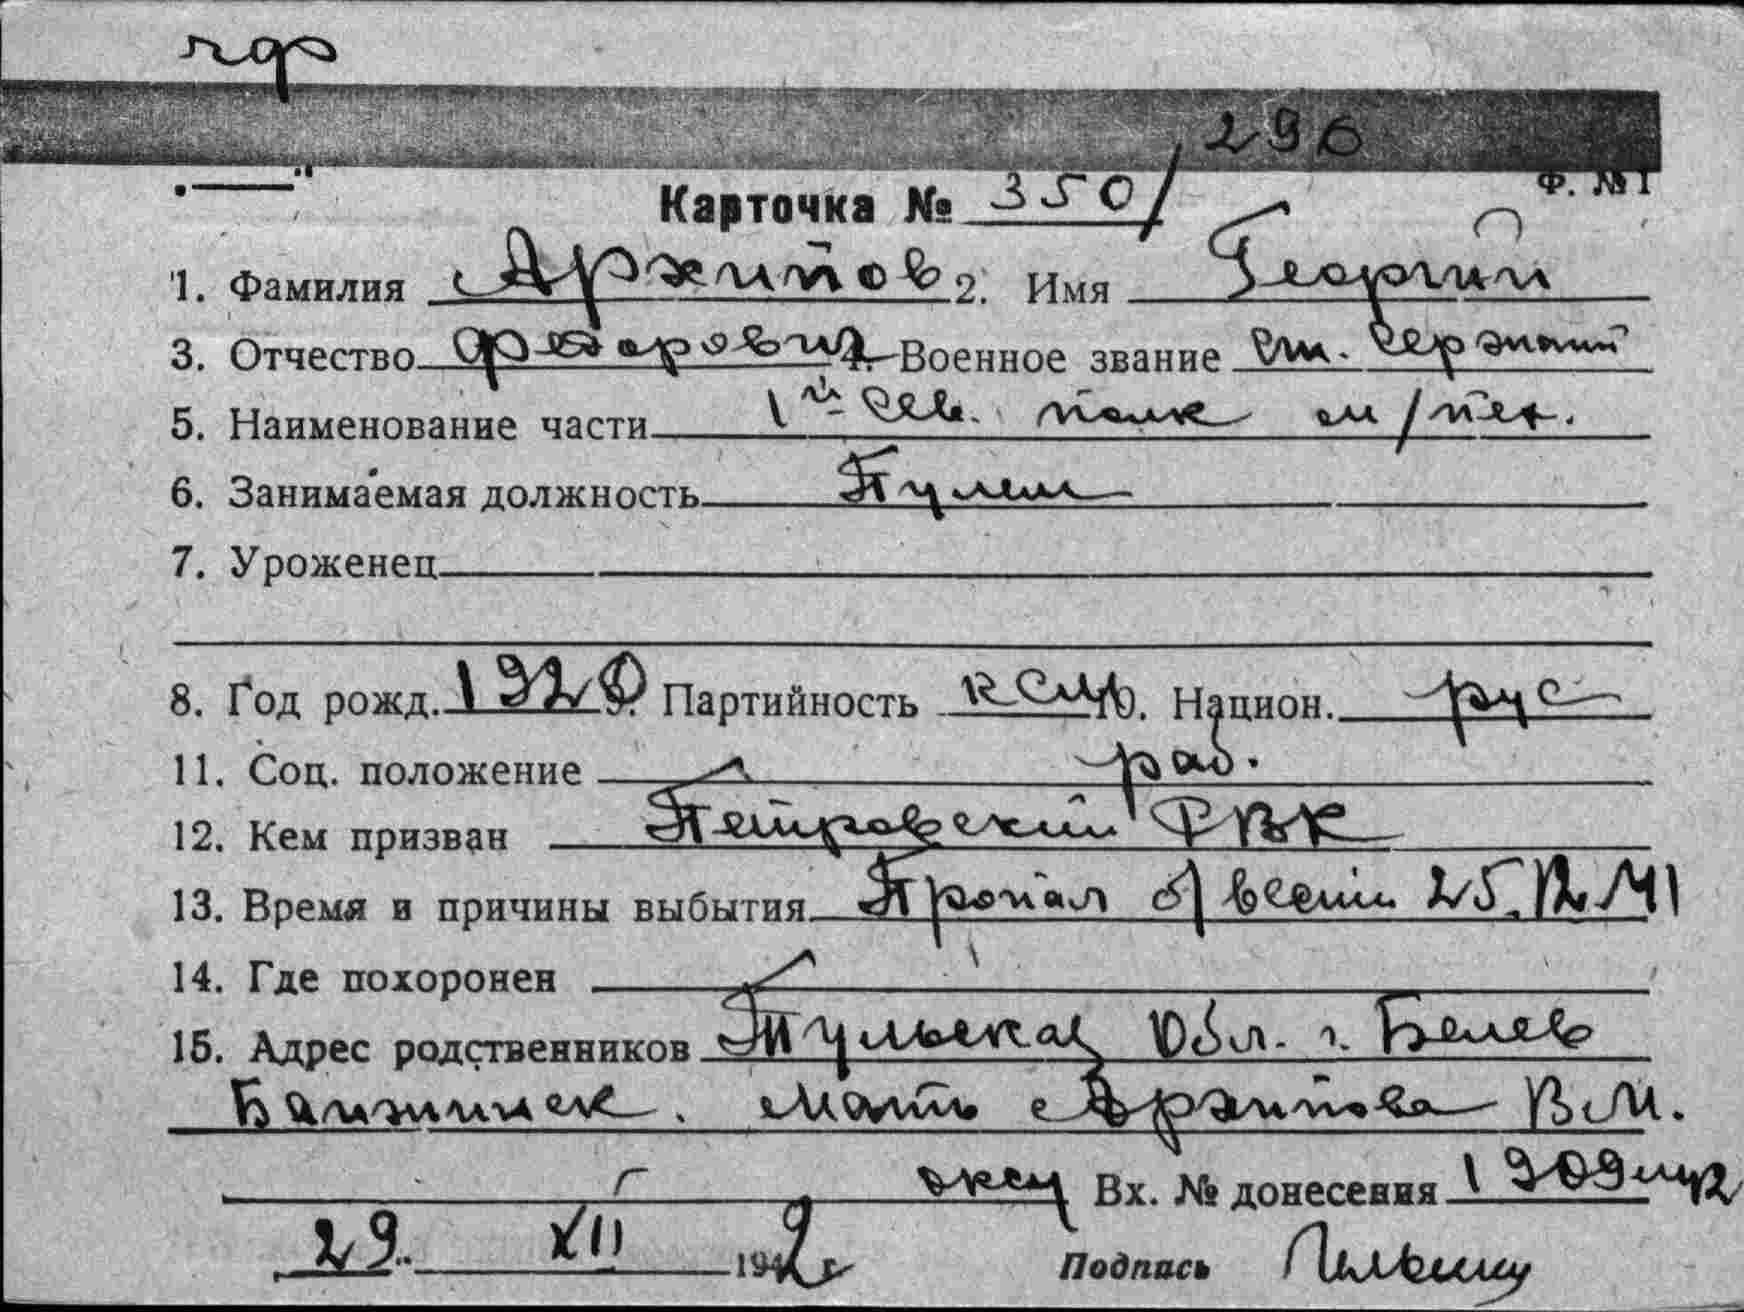 296
Ф. № 1
Карточка № 350/
1. Фамилия Архипов 2. Имя Георгий
3. Отчество Федорович 4. Военное звание ст. сержант
5. Наименование части 1й сев. полк м/пех.
6. Занимаемая должность Пулем
7. Уроженец
8. Год рожд. 1920 9. Партийность ксм 10. Национ. рус
11. Соц. положение раб.
12. Кем призван Петровский РВК
13. Время и причины выбытия Пропал б/вести 25.12.41
14. Где похоронен
15. Адрес родственников Тульская обл. г. Белев
Мать Архипова В.М.
Вх. № донесения 1909
29. XII 1942 г
Подпись